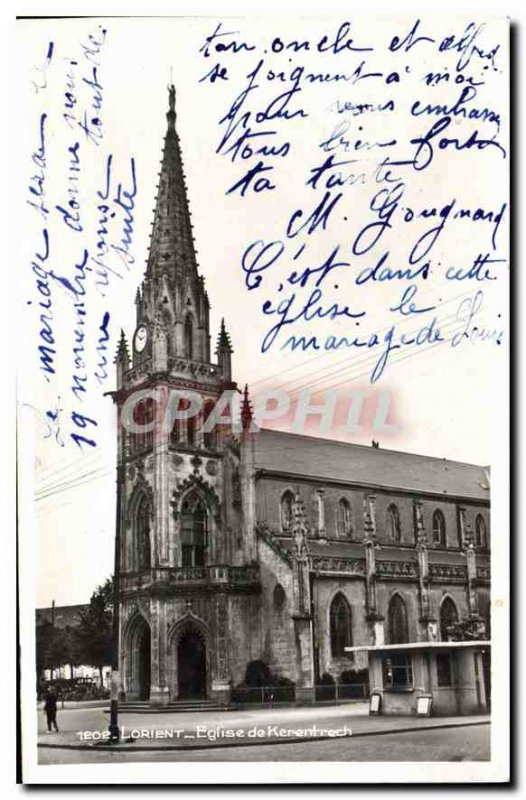 ton oncle et Alfred
se joignent à moi
pour vous embrasser
tous bien fort
ta tante
M. Gougnard
C'est dans cette
église le
mariage de Louis
Le mariage sera le
19 novembre donne nous
une reponse tout de
suite
CPAPHIL
1202 - LORIENT - Eglise de Kerentrech